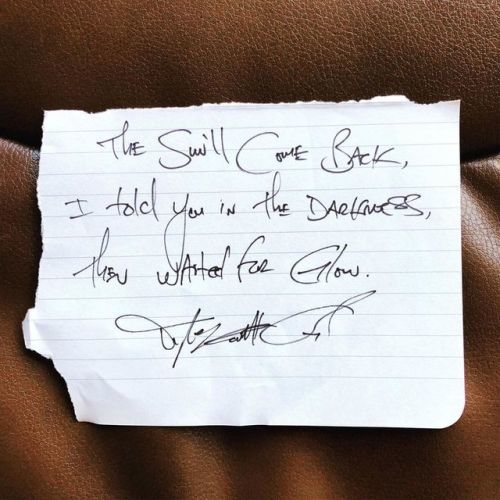 The Sun'll Come Back,
I told you in the Darkness,
then waited for Glow.